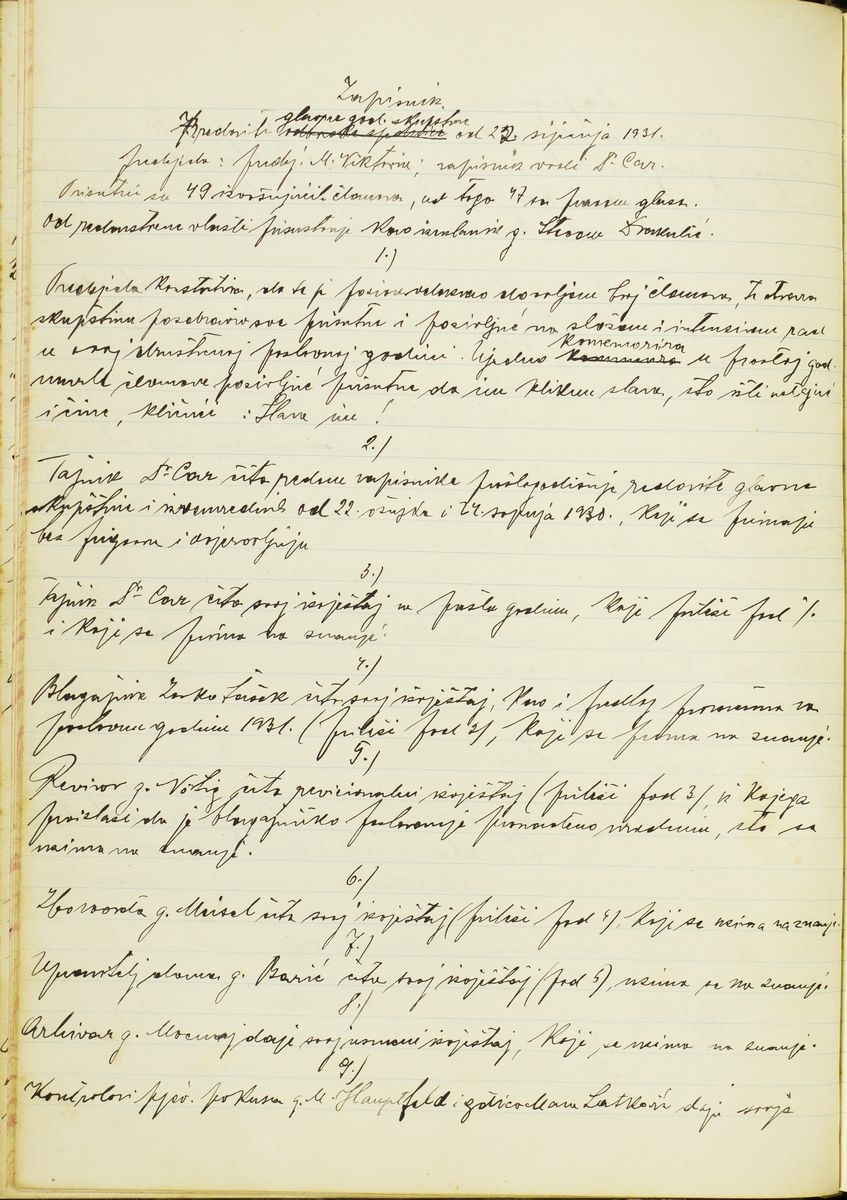 Zapisnik
Redovite glavne god. skupštine od 22. siječnja 1931.
predsjeda: predsj. M. Viktorin; zapisnik vodi Dr. Car.
Prisutni su 49 izvršujućih članova, od toga 47 sa pravom glasa.
Od redarstvene vlasti prisustvuje kao izaslanik g. Stevan Drakulić.
1.)
Predsjeda konstatira, da se je posve odazvao dovoljan broj članova, te otvara
skupštinu pozdravivši sve prisutne i pozivljuć na složan i intenzivan rad
u ovoj društvenoj poslovnoj godini. Ujedno komemorira u prošloj god.
umrle članove pozivljuć prisutne da im kliknu slava, što isti ustajući
i čine, kličući: Slava im!
2.)
Tajnik Dr. Car čita redom zapisnike prošlogodišnje redovite glavne
skupštine i izvanrednih od 22. ožujka i 24. srpnja 1930., koji se primaju
bez prigovora i ovjerovljuju
3.)
Tajnik Dr. Car čita svoj izvještaj za prošlu godinu, koji priliši pod 1/.
i koji se prima na znanje.
4.)
Blagajnik Žarko čita svoj izvještaj, kao i predlog proračuna za
poslovnu godinu 1931. (priliši pod 2/, koji se prima na znanje.
5.)
Revizor g. čita revizionalni izvještaj (priliši pod 3/, iz kojega
proizlazi da je blagajničko poslovanje pronađeno urednim, što se
uzima na znanje.
6.)
Zborovođa g. Meisel čita svoj izvještaj (priliši pod 4/, koji se uzima na znanje.
7.)
Upravitelj doma g. Barić čita svoj izvještaj (pod 5), uzima se na znanje.
8.)
Arhivar g. Mocnaj daje svoj usmeni izvještaj, koji se uzima na znanje.
9.)
Kontrolori pjev. pokusa g. M. Hauptfeld i gđica Mara Latković daju svoje